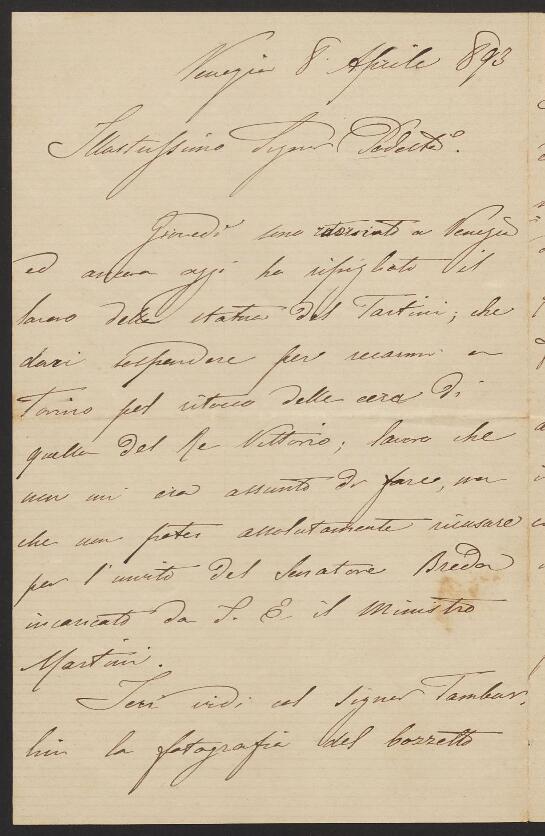 Venezia 8. Aprile 893
Illustrissimo Signor Podestà.
Giovedì sono ritornato a Venezia
ed ancora oggi ho ripigliato il
lavoro della statua del Tartini; che
dovei sospendere per recarmi a
Torino pel ritocco delle cera di
quella del Re Vittorio; lavoro che
non mi era assunto di fare, ma
che non potei assolutamente ricusare
per l'invito del Senatore Breda
incaricato da S. E. il Ministro
Martini.
Ieri vidi col signor Tambur,
lini la fotografia del bozzetto